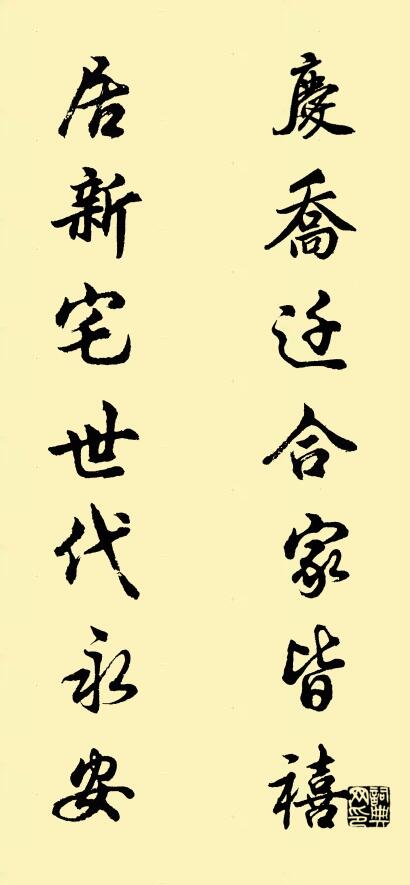 慶喬迁合家皆禧
居新宅世代永安
詞典网印